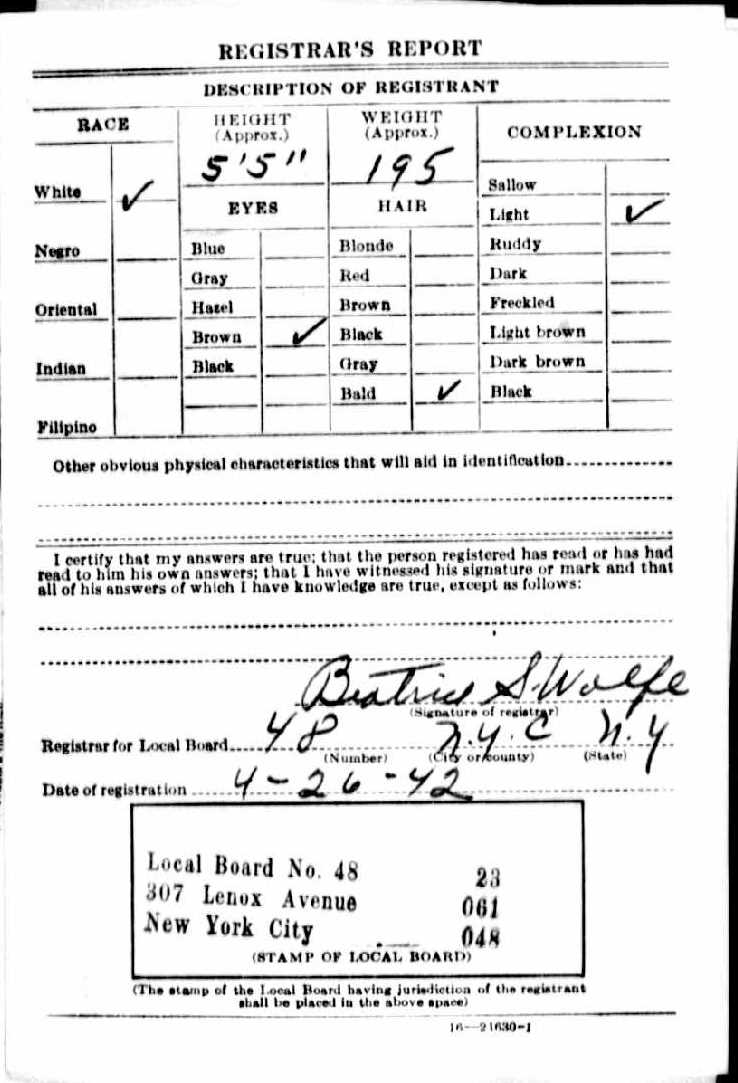 REGISTRAR'S REPORT
DESCRIPTION OF REGISTRANT
RACE
HEIGHT
(Approx.)
WEIGHT
(Approx.)
COMPLEXION
5'5"
195
White ✓
EYES
HAIR
Sallow
Light ✓
Negro
Blue
Blonde
Ruddy
Gray
Red
Dark
Oriental
Hazel
Brown
Freckled
Brown ✓
Black
Light brown
Indian
Black
Gray
Dark brown
Bald ✓
Black
Filipino
Other obvious physical characteristics that will aid in identification
I certify that my answers are true; that the person registered has read or has had
read to him his own answers; that I have witnessed his signature or mark and that
all of his answers of which I have knowledge are true, except as follows:
Beatrice S. Wolfe
(Signature of registrar)
Registrar for Local Board 48 N.Y.C N.Y
(Number) (City or county) (State)
Date of registration 4-26-42
Local Board No. 48 23
307 Lenox Avenue 061
New York City 048
(STAMP OF LOCAL BOARD)
(The stamp of the Local Board having jurisdiction of the registrant
shall be placed in the above space)
16—21630-1